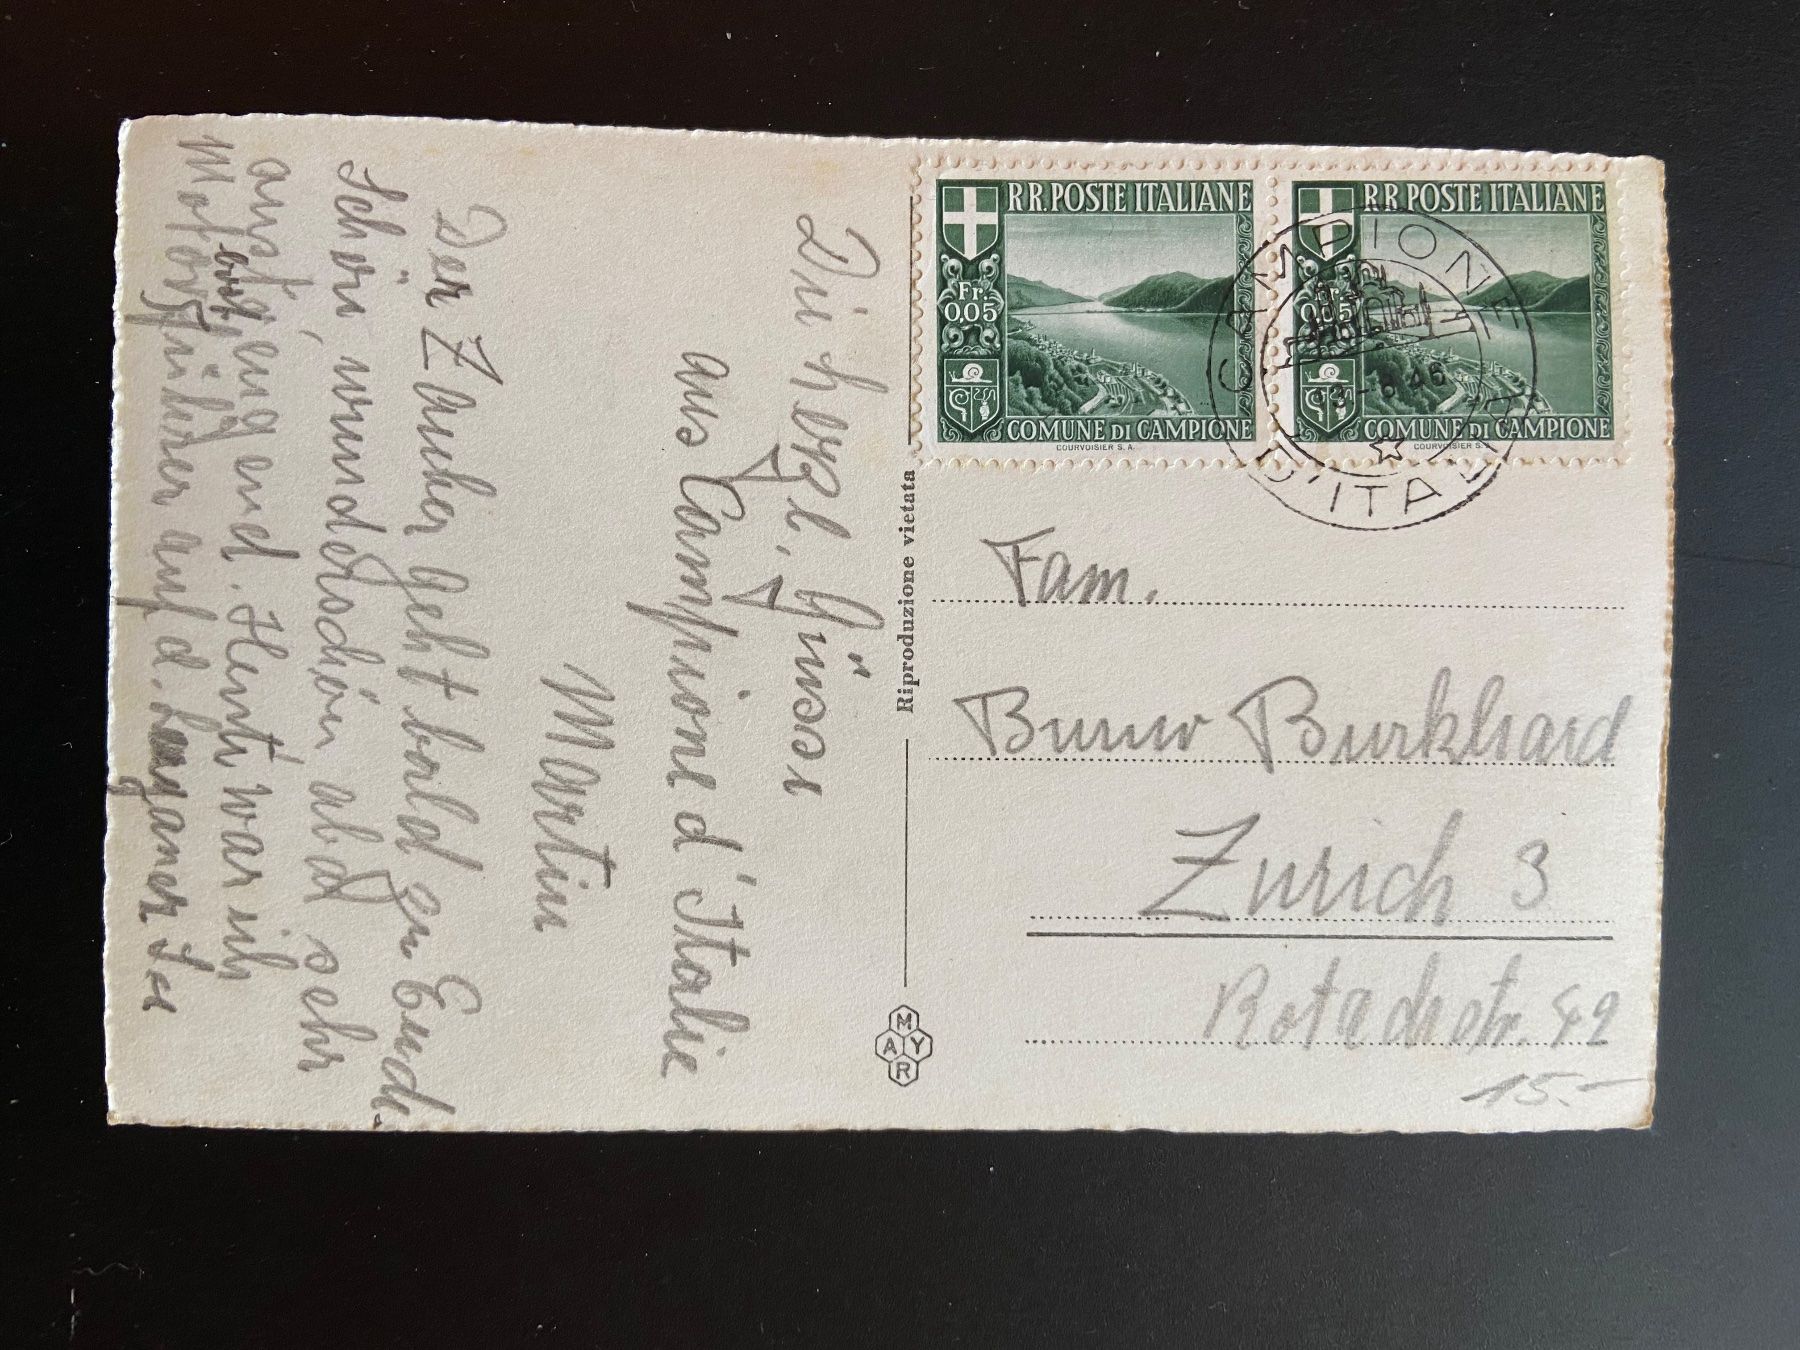 Die herzl. Grüsse
aus Campione d'Italia
Martin
Der Zauber geht bald zu Ende.
Schön, wunderschön aber sehr
anstrengend. Heute war ich
Motor Führer auf d. Luganer See
boot
Riproduzione vietata
MAYR
R R. POSTE ITALIANE
Fr.
0,05
COMUNE DI CAMPIONE
COURVOISIER S. A.
R R. POSTE ITALIANE
Fr.
0,05
COMUNE DI CAMPIONE
COURVOISIER S. A.
CAMPIONE D'ITALIA
46
Fam.
Bruno Burkhard
Zürich 3
15.-